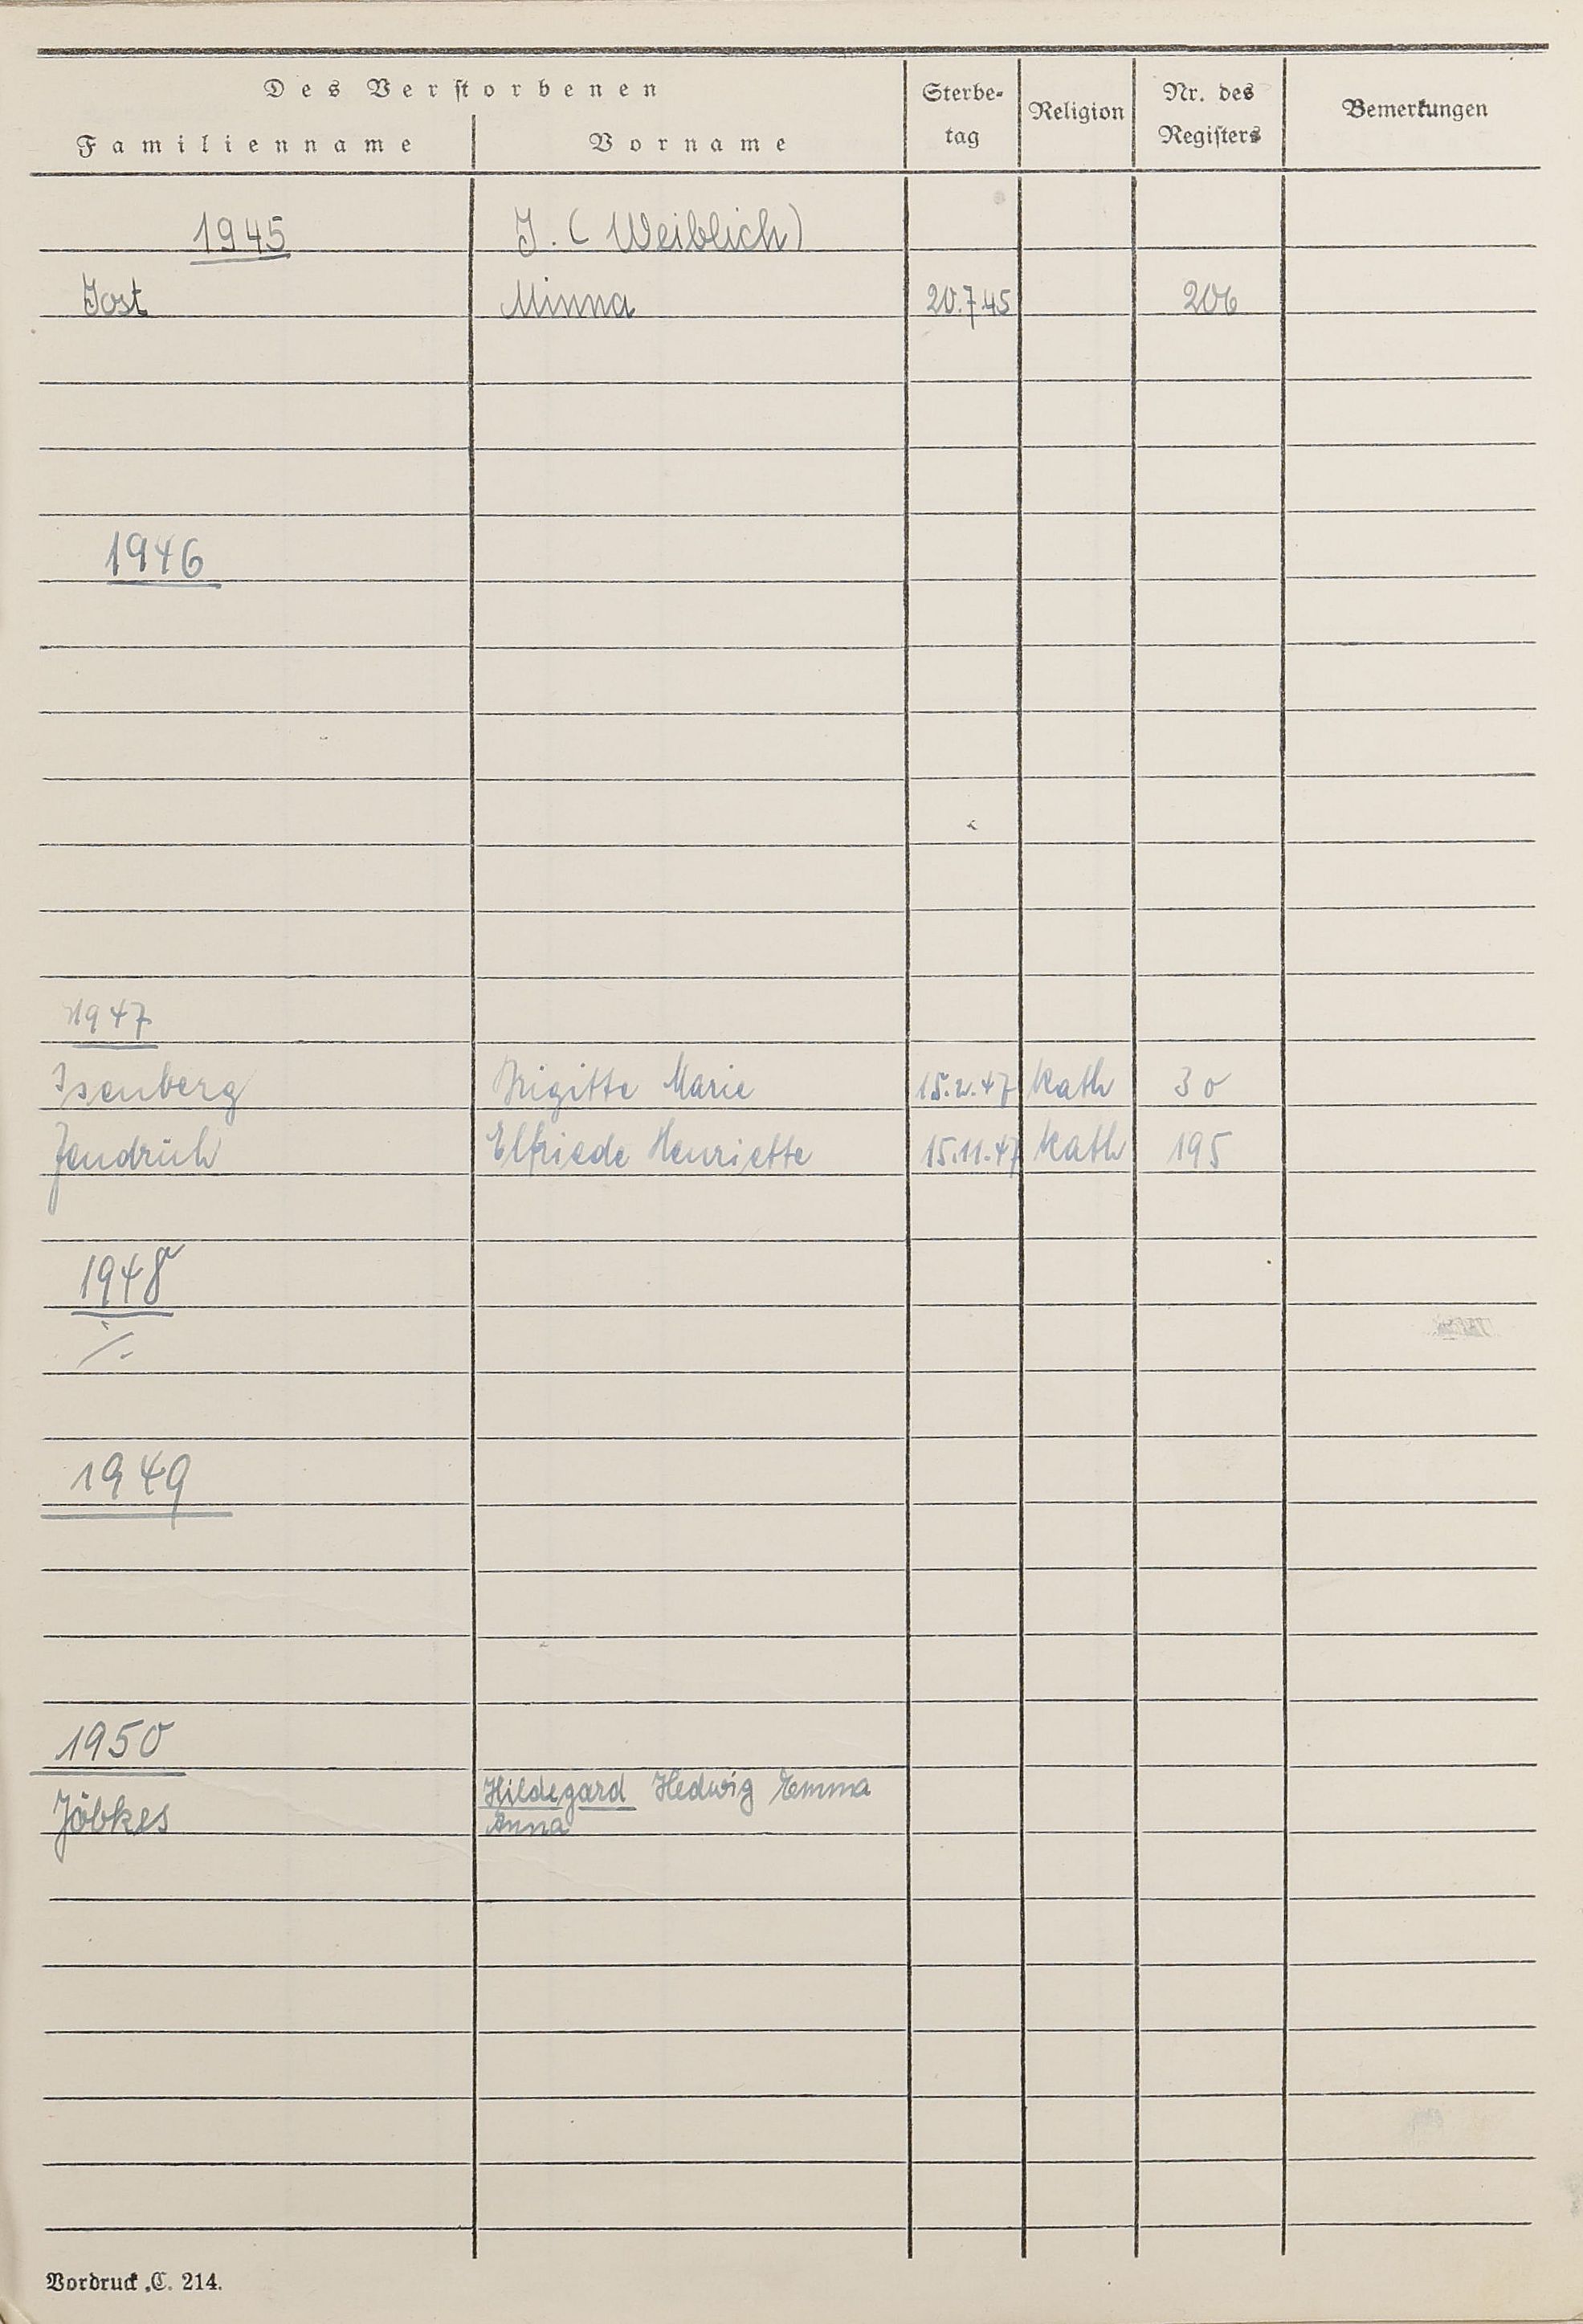 Des Verstorbenen
Familienname Vorname Sterbe-
tag Religion Nr. des
Registers Bemerkungen
1945 J. (Weiblich)
Jost Minna 20.7.45 206
1946
1947
Isenberg Brigitte Marie 15.2.47 Kath 30
Jendrüh Elfriede Henriette 15.11.47 Kath 195
1948
1949
1950
Jöbkes Hildegard Hedwig Emma
Anna
Vordruck C. 214.